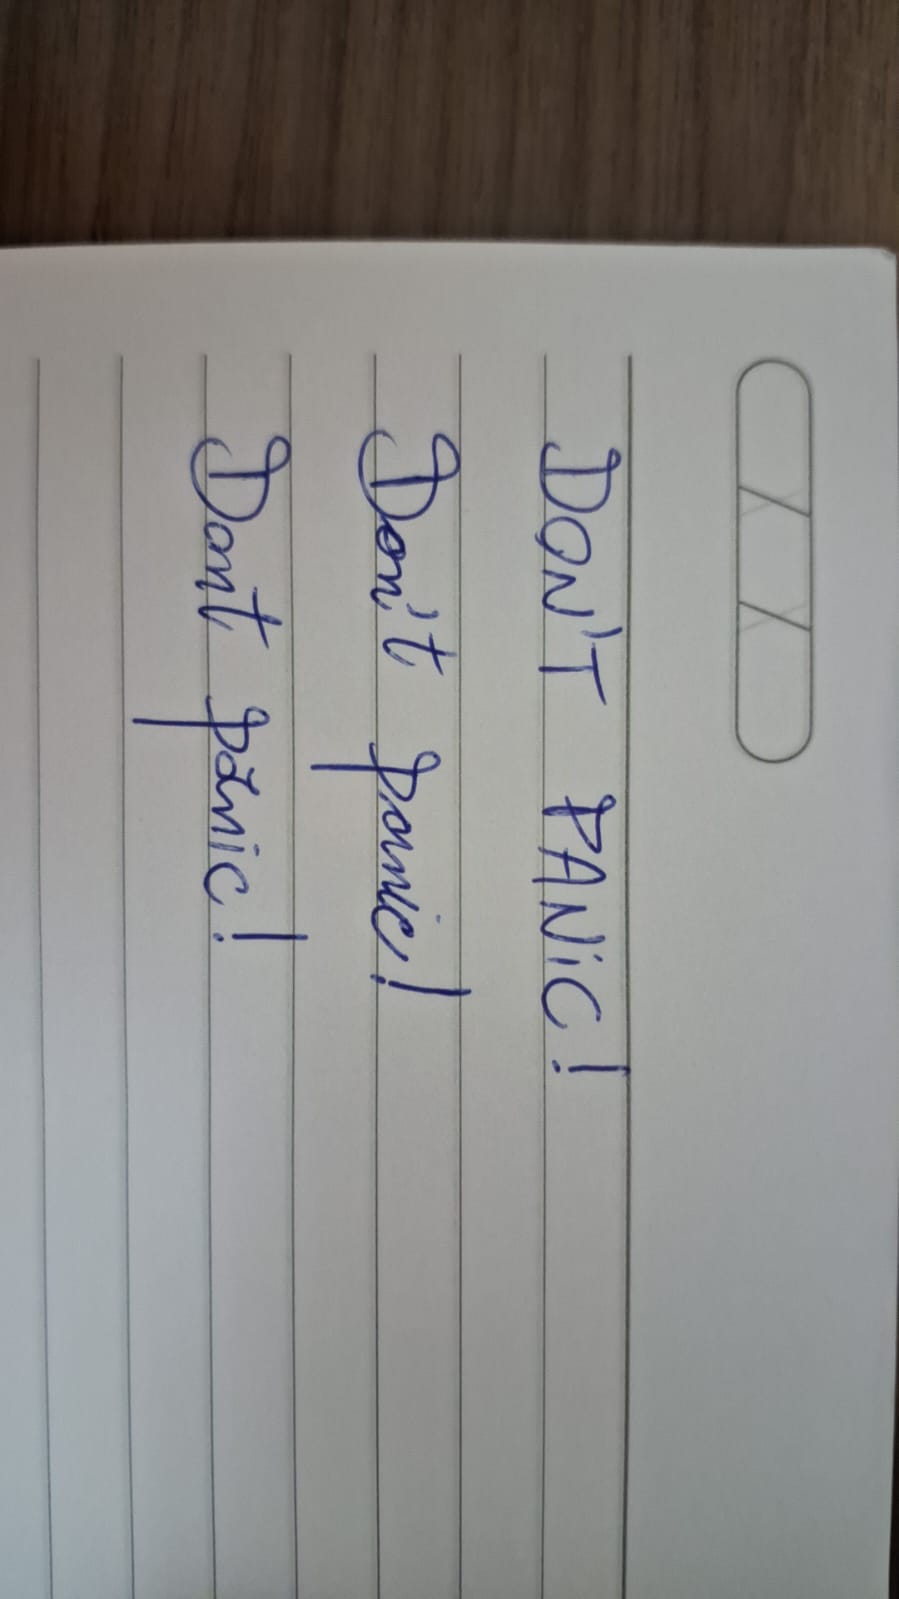 DON'T PANiC!
Don't panic!
Don't panic!